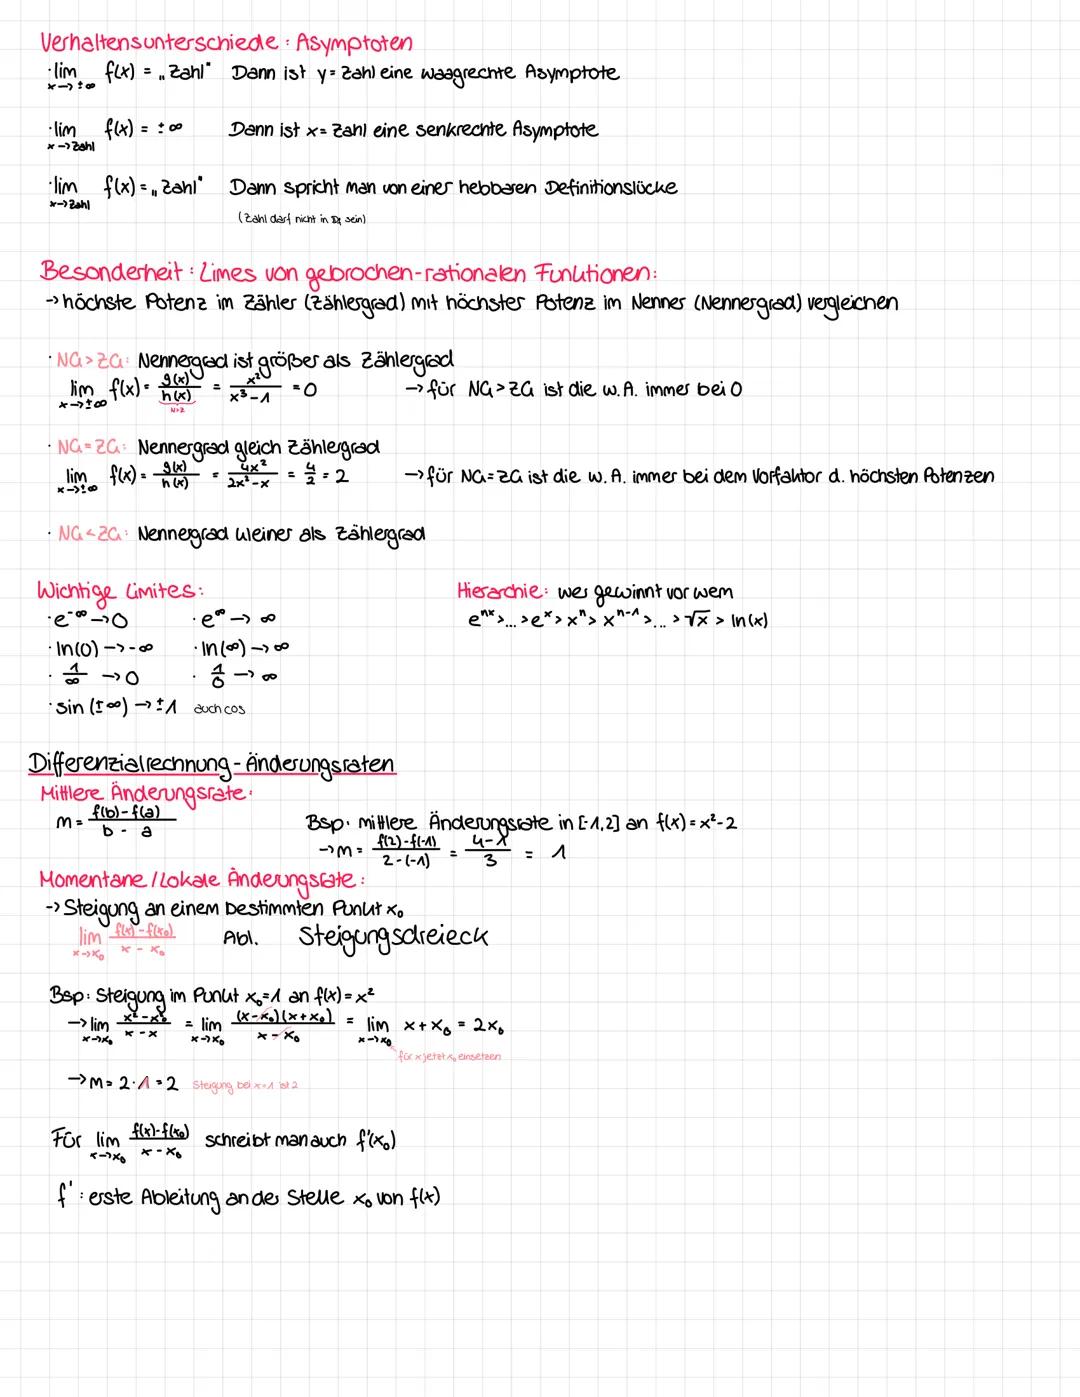 Verhaltensunterschiede: Asymptoten
· lim x→±∞ f(x) = „Zahl" Dann ist y = Zahl eine waagrechte Asymptote
· lim x→Zahl f(x) = ±∞ Dann ist x = Zahl eine senkrechte Asymptote
· lim x→Zahl f(x) = „Zahl" Dann spricht man von einer hebbaren Definitionslücke
(Zahl darf nicht in Df sein)
Besonderheit: Limes von gebrochen-rationalen Funktionen:
→ höchste Potenz im Zähler (Zählergrad) mit höchster Potenz im Nenner (Nennergrad) vergleichen
· NG > ZG: Nennergrad ist größer als Zählergrad
lim x→±∞ f(x) = g(x)/h(x) = x²/(x³-1) = 0 → für NG > ZG ist die w. A. immer bei 0
N>Z
· NG = ZG: Nennergrad gleich Zählergrad
lim x→±∞ f(x) = g(x)/h(x) = 4x²/(2x²-x) = 4/2 = 2 → für NG = ZG ist die w. A. immer bei dem Vorfaktor d. höchsten Potenzen
· NG < ZG: Nennergrad kleiner als Zählergrad
Wichtige Limites: Hierarchie: wer gewinnt vor wem
· e^-∞ → 0 · e^∞ → ∞ e^nx > ... > e^x > x^n > x^n-1 > ... > √x > ln(x)
· ln(0) → -∞ · ln(∞) → ∞
· 1/∞ → 0 · 1/0 → ∞
· sin (±∞) → ±1 auch cos
Differenzialrechnung - Änderungsraten
Mittlere Änderungsrate:
m = (f(b) - f(a))/(b - a) Bsp: mittlere Änderungsrate in [-1,2] an f(x) = x²-2
→ m = (f(2) - f(-1))/(2 - (-1)) = (4-1)/3 = 1
Momentane / Lokale Änderungsrate:
→ Steigung an einem bestimmten Punkt x₀
lim x→x₀ (f(x) - f(x₀))/(x - x₀) Abl. Steigungsdreieck
Bsp: Steigung im Punkt x₀=1 an f(x) = x²
→ lim x→x₀ (x²-x₀²)/(x-x) = lim x→x₀ (x-x₀)(x+x₀)/(x-x₀) = lim x→x₀ x + x₀ = 2x₀
für x jetzt x₀ einsetzen
→ m = 2·1 = 2 Steigung bei x=1 ist 2
Für lim x→x₀ (f(x)-f(x₀))/(x-x₀) schreibt man auch f'(x₀)
f': erste Ableitung an der Stelle x₀ von f(x)